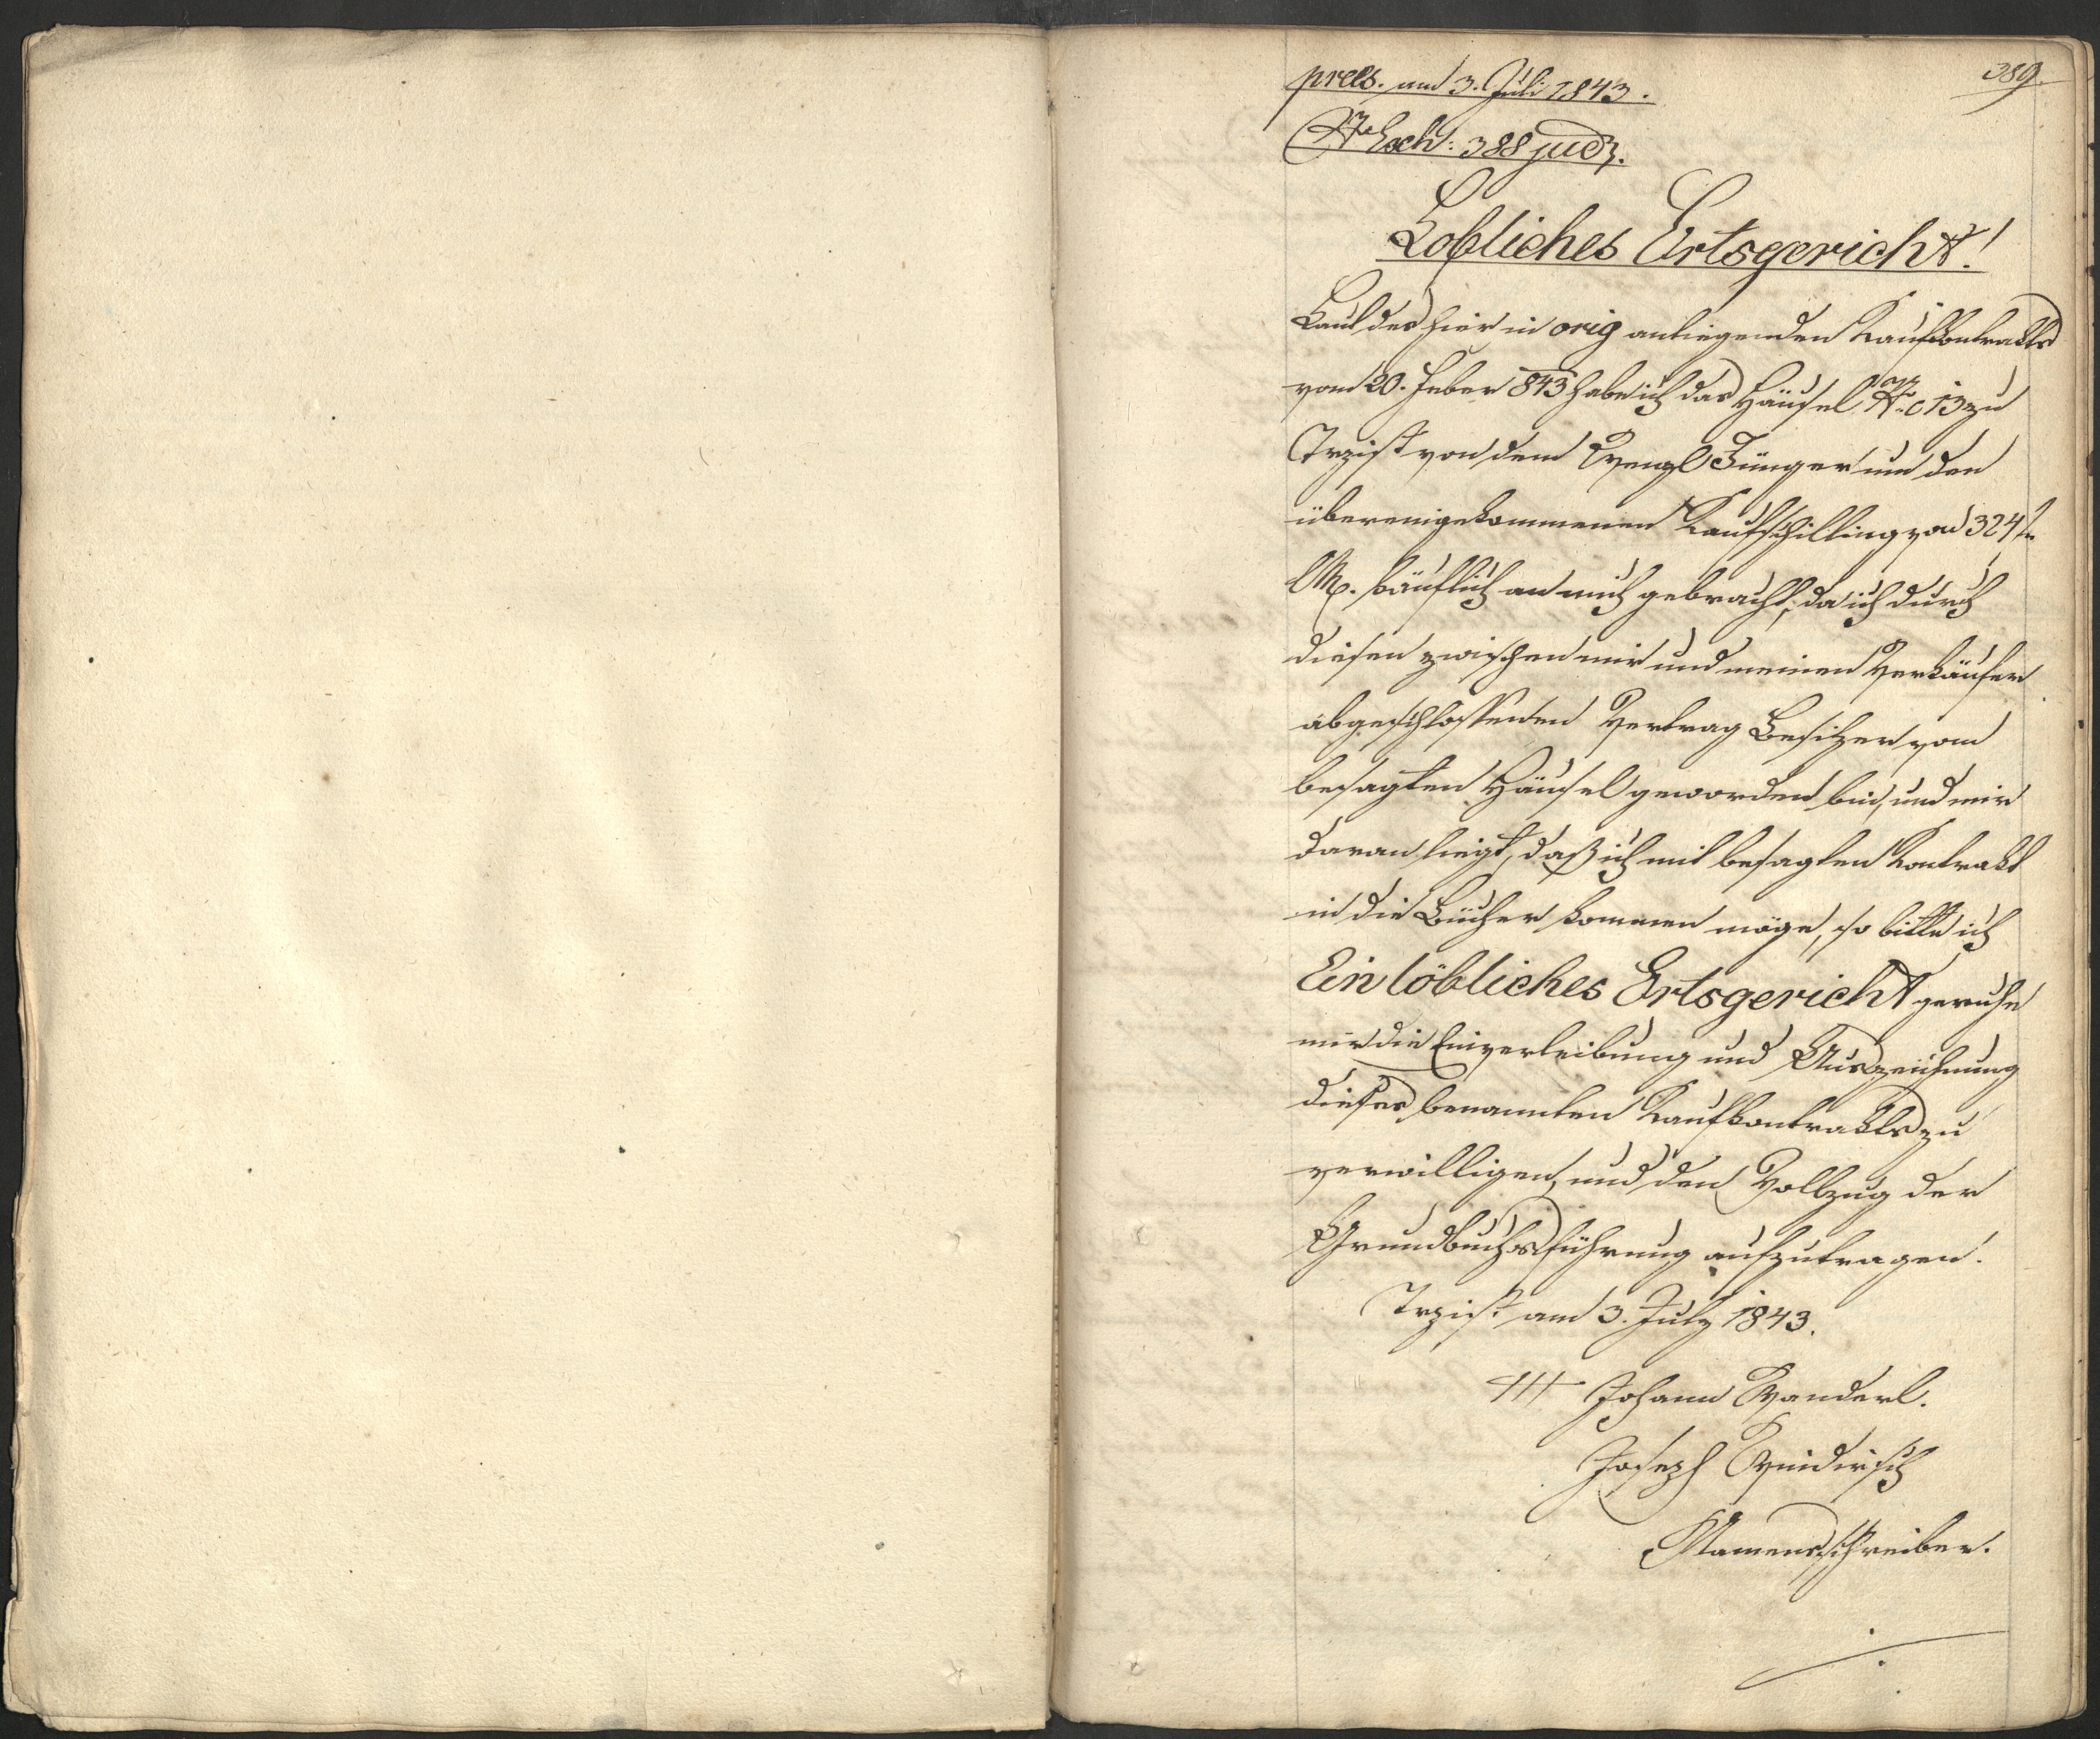 389.
pres. am 3. Juli 1843.
Nro Exh: 388 judz.
Löbliches Ortsgericht!
Laut des hier in orig anliegenden Kaufkontrakts
vom 20. Feber 843 habe ich das Häusel NC 13 zu
Trzist von dem Wenzl Jünger um den
übereingekommenen Kaufschilling von 324 f
CM. käuflich an mich gebracht, da ich durch
diesen zwischen mir und meinen Verkäufer
abgeschlossenen Vertrag Besitzer vom
besagten Häusel geworden bin, und mir
daran liegt, daß ich mit besagten Kontrakt
in die Bücher kommen möge, so bitte ich
Ein löbliches Ortsgericht geruhe
mir die Einverleibung und Auszeichnung
dieses benannten Kaufkontrakts zu
verwilligen, und den Vollzug der
Grundbuchsführung aufzutragen.
Trzist am 3. July 1843.
+++ Johann Wanderl.
Joseph Windirsch
Namensschreiber.